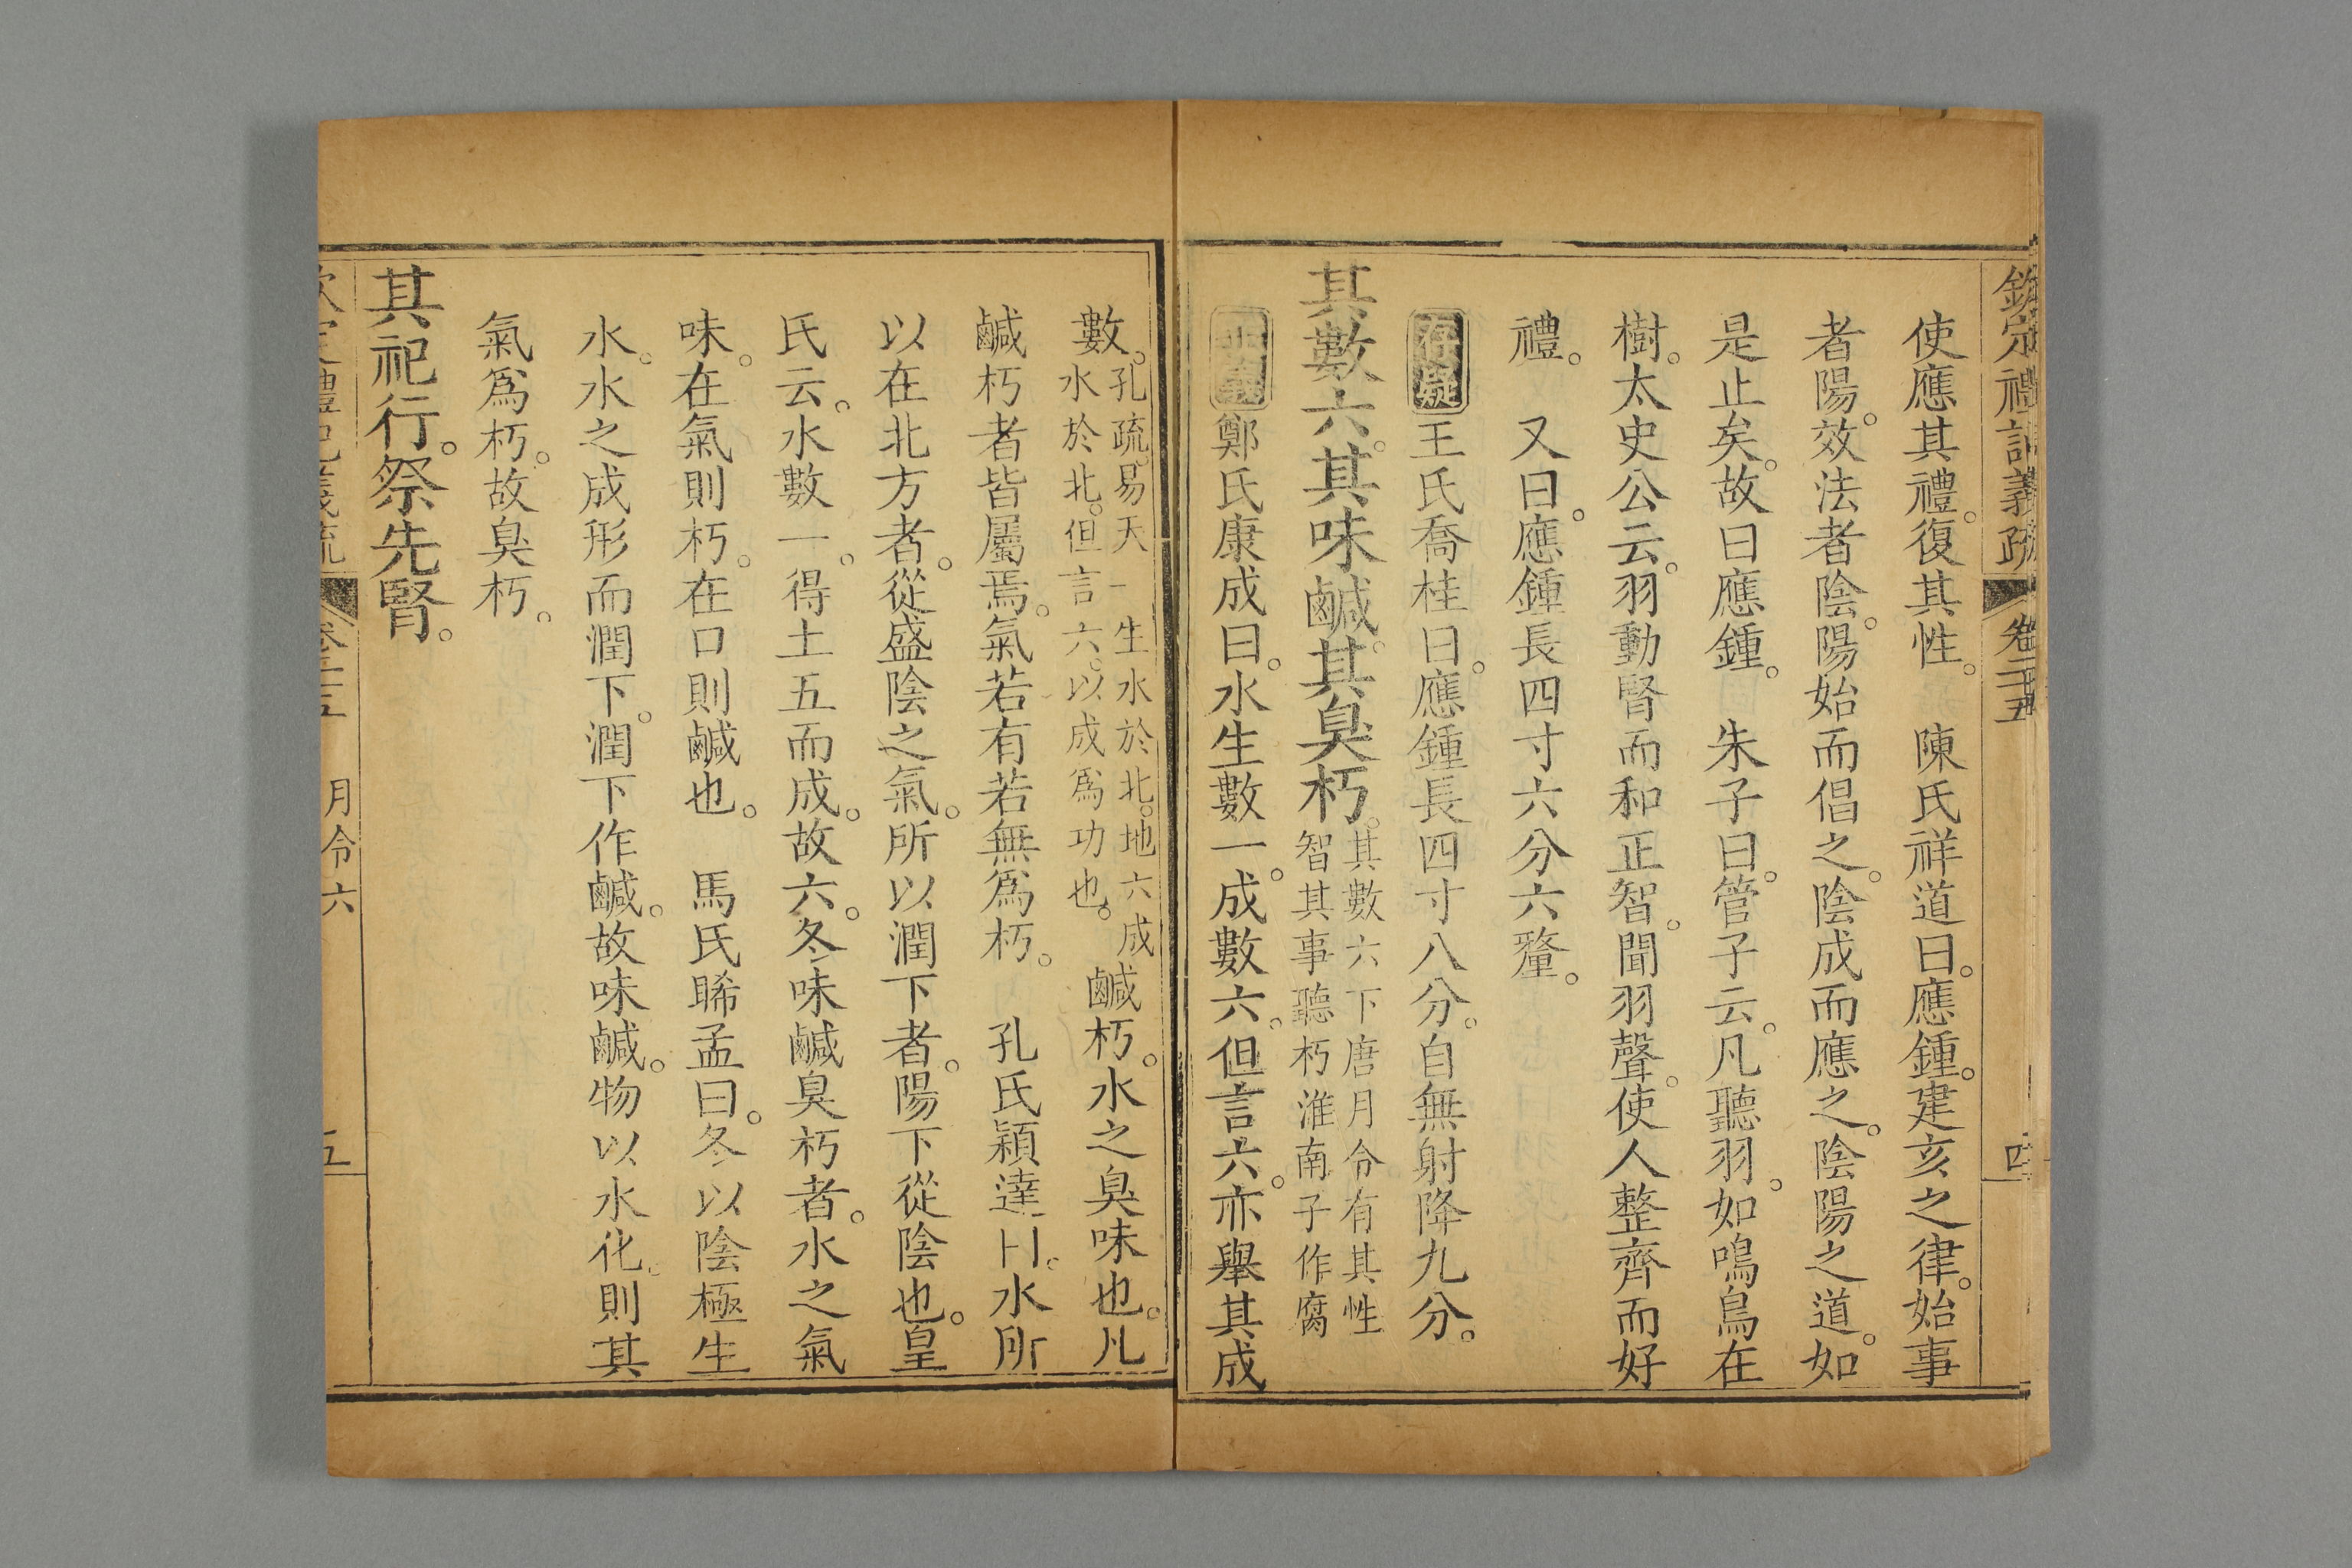 欽定禮記義疏 卷二十五 四
使應其禮。復其性。 陳氏祥道曰。應鍾。建亥之律。始事
者陽。效法者陰。陽始而倡之。陰成而應之。陰陽之道。如
是止矣。故曰應鍾。 朱子曰。管子云。凡聽羽。如鳴鳥在
樹。太史公云。羽動腎而和正智。聞羽聲。使人整齊而好
禮。 又曰。應鍾長四寸六分六釐。
存疑 王氏喬桂曰。應鍾長四寸八分。自無射降九分。
其數六。其味鹹。其臭朽。其數六下唐月令有其性
智其事聽朽淮南子作腐
正義 鄭氏康成曰。水生數一。成數六。但言六。亦舉其成
數。孔疏。易天一生水於北。地六成
水於北。但言六。以成爲功也。鹹朽。水之臭味也。凡
鹹朽者皆屬焉。氣若有若無爲朽。 孔氏穎達曰。水所
以在北方者。從盛陰之氣。所以潤下者。陽下從陰也。皇
氏云。水數一。得土五而成。故六。冬味鹹臭朽者。水之氣
味。在氣則朽。在口則鹹也。 馬氏睎孟曰。冬以陰極生
水。水之成形而潤下。潤下作鹹。故味鹹。物以水化。則其
氣爲朽。故臭朽。
其祀行。祭先腎。
欽定禮記義疏 卷二十五 月令六 五